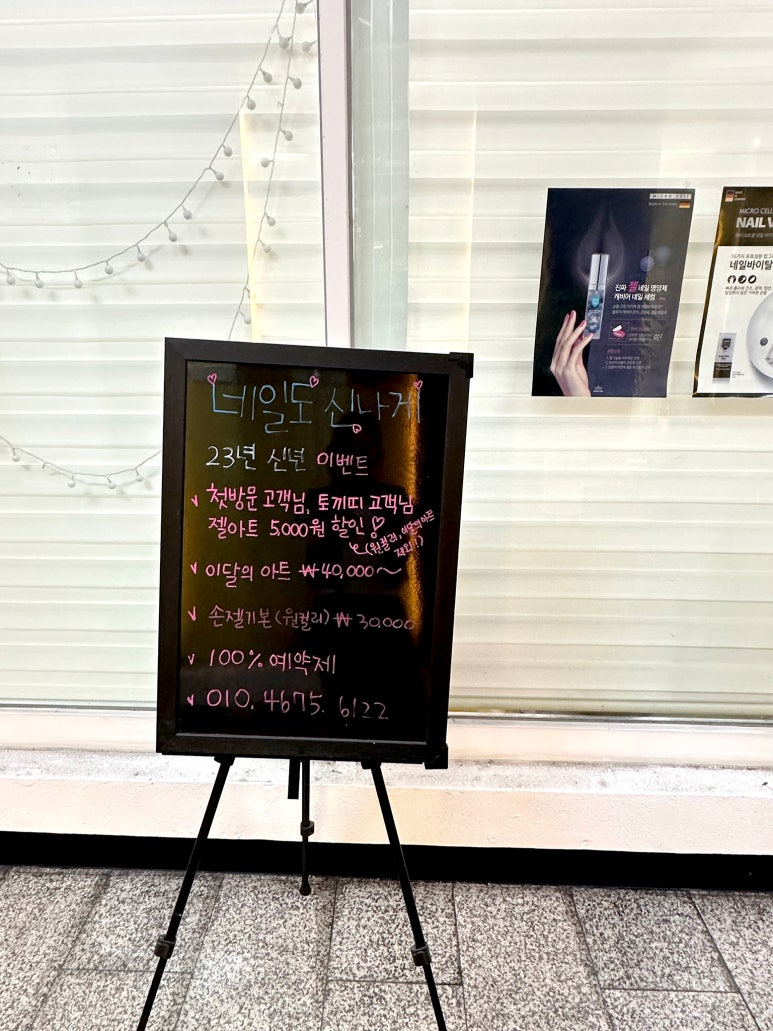 네일도 신나게
23년 신년 이벤트
✓ 첫방문 고객님, 토끼띠 고객님
젤아트 5,000원 할인!
(원컬러, 이달의아트
제외!)
✓ 이달의 아트 ₩40,000~
✓ 손젤기본(원컬러) ₩30,000
✓ 100% 예약제
✓ 010. 4675. 6122
MICRO CELL
Made in Germany
진짜 젤네일 영양제
캐비어 네일 세럼
MICRO CELL
NAIL V
네일바이탈